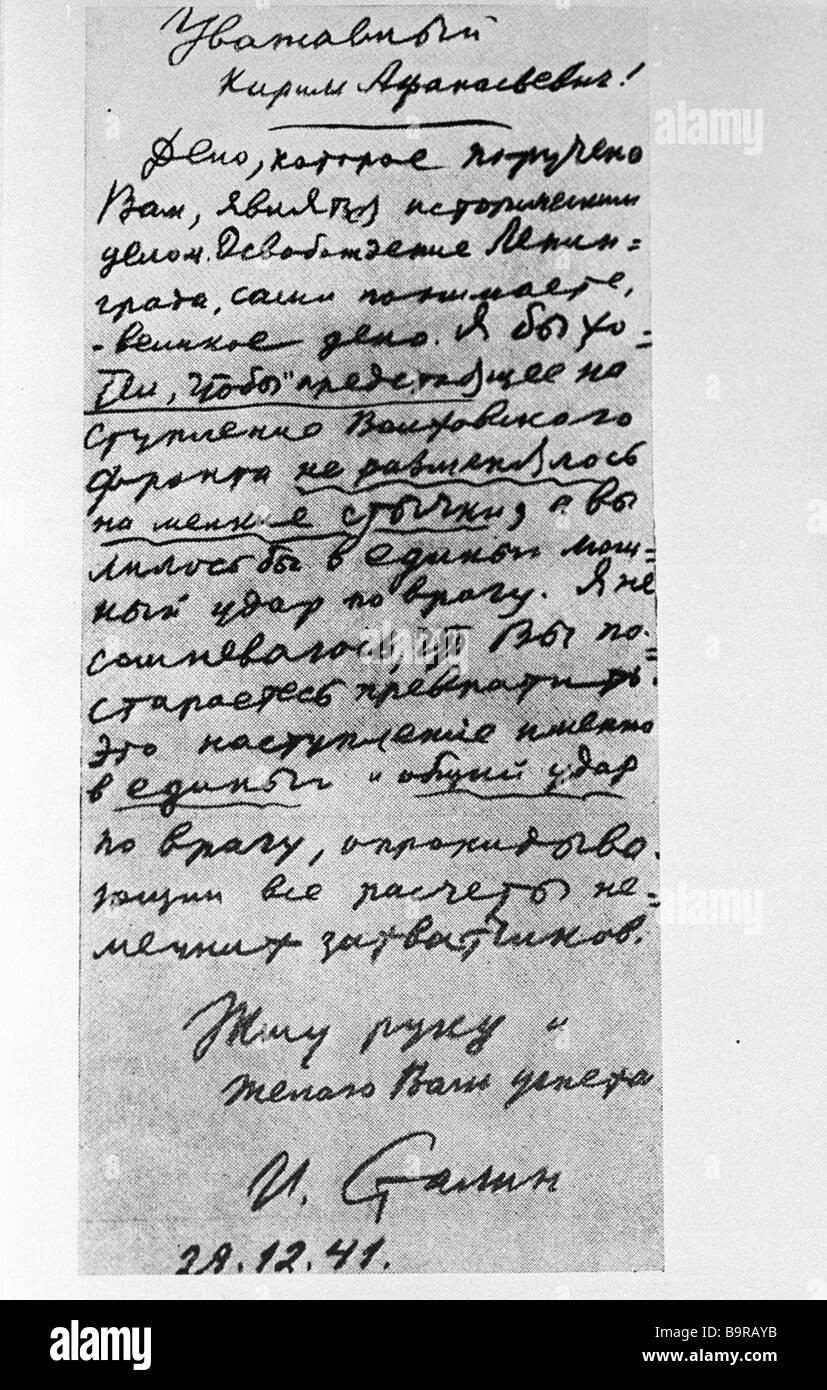 Уважаемый
Кирилл Афанасьевич!
Дело, которое поручено
Вам, является историческим
делом. Освобождение Ленин=
града, сами понимаете,
- великое дело. Я бы хо=
тел, чтобы предстоящее на
ступление Волховского
фронта не разменялось
на мелкие стычки, а вы
лилось бы в единый мощ=
ный удар по врагу. Я не
сомневаюсь, что Вы по=
стараетесь превратить
это наступление именно
в единый и общий удар
по врагу, опрокидыва=
ющий все расчеты не=
мецких захватчиков.
Жму руку и
желаю Вам успеха
И. Сталин
29.12.41.
alamy
alamy
alamy
alamy
Image ID: B9RAYB
www.alamy.com